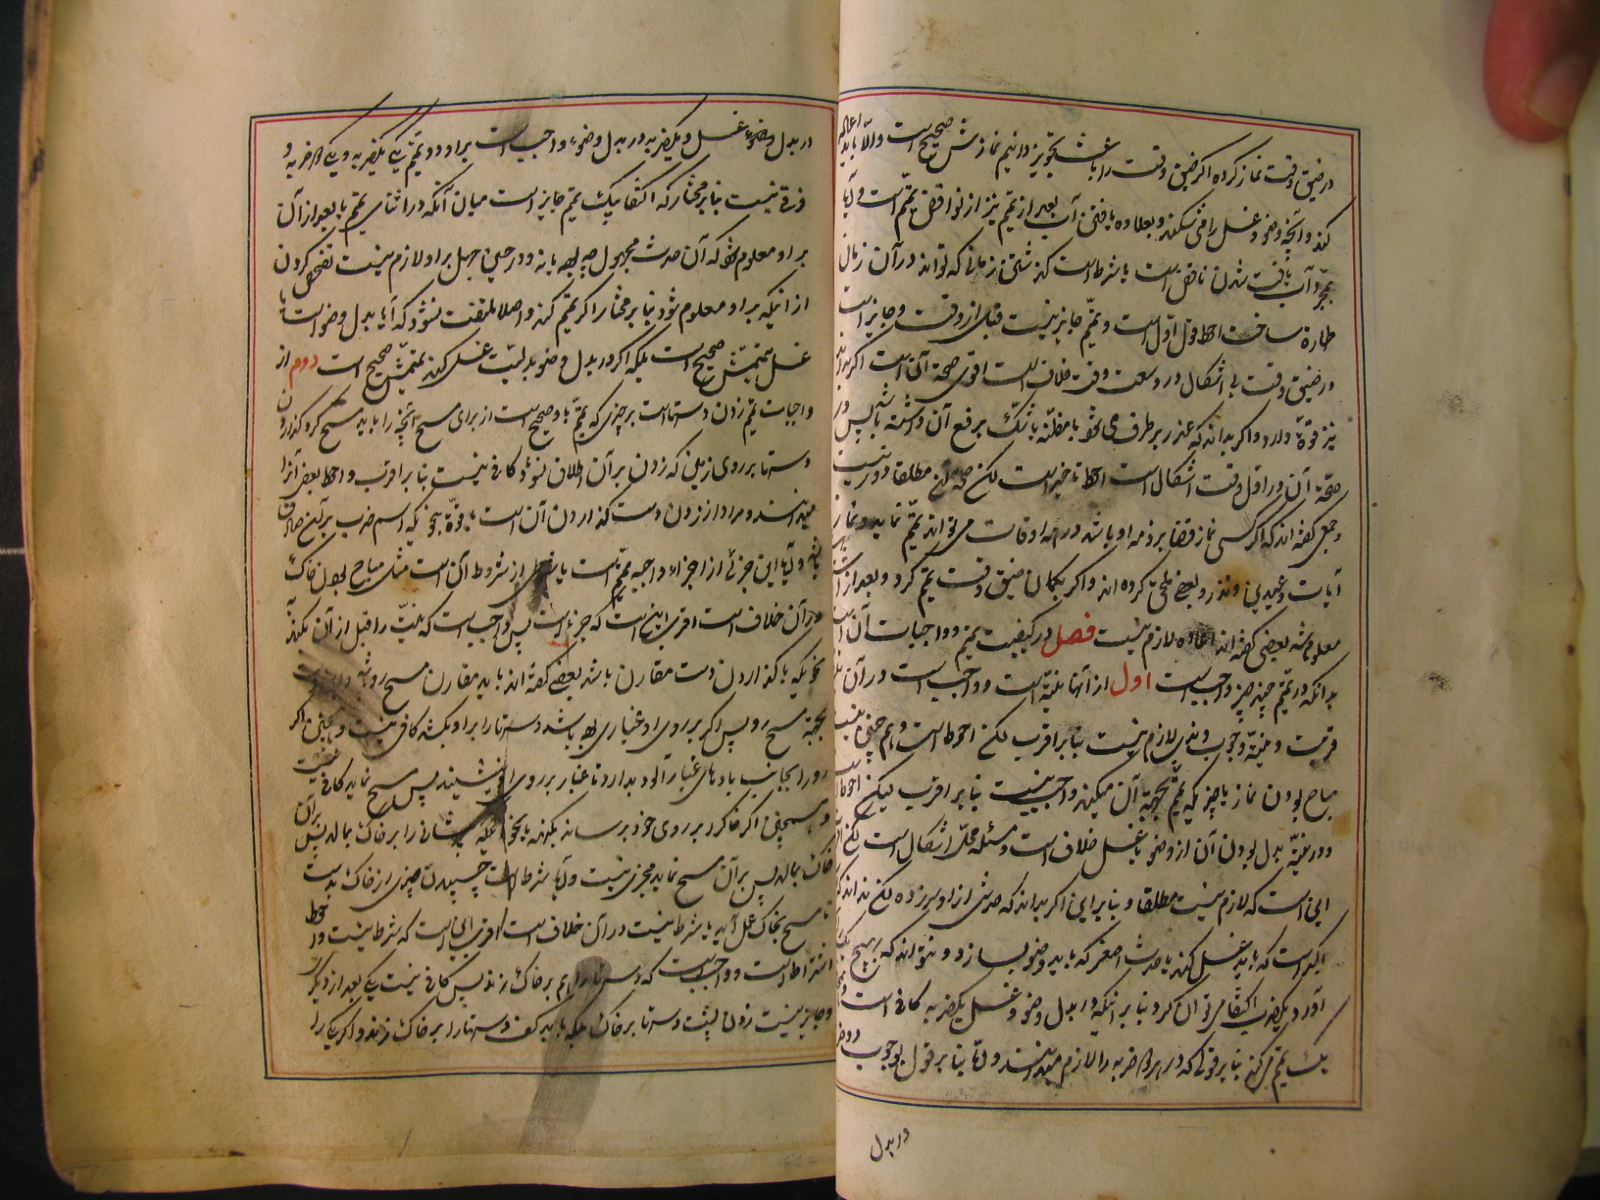 در ضیق وقت نماز کرده اگر ضیق وقت را باعث تجویز دانیم نمازش صحیح است والّا باید اعاده
کند و آنچه وضو و غسل را می‌شکند و بعلاوه یافتن آب بعد از تیمّم نیز از نواقض تیمّم است و آیا
بمجرّد آب یافت شدن ناقض است یا شرط است گذشتن زمانی که تواند در آن زمان
طهارة ساخت احوط قول اوّل است و تیمّم جایز نیست قبل از وقت و جایز است
در ضیق وقت بی اشکال و در وسعت وقت خلاف است اقوی صحة آن است اگر
نیز قوّة دارد و اگر بداند که عذر برطرف می‌شود یا مظنّه یا شک برفع آن داشته باشد پس در
صحّة آن در اوّل وقت اشکال است احوط تاخیر است لکن مطلقا دور نیست
و جمعی گفته‌اند که اگر کسی نماز قضا بر ذمه او باشد در همه اوقات می‌تواند تیمّم نماید و نماز
آیات و عیدین و نذر و بعضی ملحق کرده‌اند و اگر بگمان ضیق وقت تیمّم کرد و بعد از آن
معلوم شد بعضی گفته‌اند اعاده لازم نیست فصل در کیفیت تیمّم و واجبات آن است
بدانکه در تیمّم چند چیز واجب است اول از آنها نیّة است و واجب است در آن
قربت و نیّة وجوب و ندب لازم نیست بنابر اقرب لکن احوط است و همچنین نیت
مباح بودن نماز یا چیزی که تیمّم بجهة آن میکند واجب نیست بنابر اقرب لیکن احوط است
و در نیّة بدل بودن آن از وضو یا غسل خلاف است و مسئله محل اشکال است لکن
این است که لازم نیست مطلقا و بنابراین اگر بداند که حدثی از او سر زده لکن نداند که
اکبر است که باید غسل کند یا حدث اصغر که باید وضو بسازد و نتواند که هیچ یک
آورد بیک اکتفا می‌توان کرد بنابر اینکه در بدل وضو و غسل یکضربه کافی است
یک تیمّم می‌کند بنابر قولی که در هر دو ضربه را لازم میدانند و امّا بنابر قول بوجوب دو ضربه
در بدل
در بدل غسل و یکضربه در بدل وضوء واجب است بر او دو تیمّم یکی یکضربه و یکی دو ضربه و
فرقی نیست بنابر مختار که اکتفا بیک تیمّم جایز است میان آنکه در اثنای تیمّم یا بعد از آن
بر او معلوم شود که آن حدث مجهول چه بوده یا نه و در حین جهل بر او لازم نیست تفحص کردن
از اینکه بر او معلوم شود بنابر مختار اگر تیمّم کند و اصلا ملتفت نشود که آیا بدل وضو است یا
غسل تیمّمش صحیح است بلکه اگر در بدل وضو بدلیّت غسل کند تیمّمش صحیح است دوم از
واجبات تیمّم زدن دستها است بر چیزی که تیمّم باو صحیح است از برای مسح آنچه را باید مسح کرد
دستها بر روی زمین که زدن بر آن اطلاق نشود کافی نیست بنابر اقرب و احوط بعضی آنرا
میدانند و مراد از زدن دست گذاردن آن است بقوّة بنحویکه اسم ضرب بر آن صادق
باشد و آیا این جزئی از اجزاء واجبه تیمّم است یا شرطی از شروط آن است مثل مباح بودن خاک
در آن خلاف است اقرب این است که جزء است پس واجب است که نیّت را قبل از آن بکند
بنحویکه با گذاردن دست مقارن باشد بعضی گفته‌اند باید مقارن مسح رو
بجهة مسح رو پس اگر بر روی او غباری بوده باشد و دستها را بر او بکشد کافی نیست و همچنین اگر
رو را بجانب بادهای غبار آلود بدارد تا غبار بر روی او نشیند پس مسح نماید کافی نیست
و همچنین اگر خاک را بر روی خود برساند پیشانی را بر خاک بمالد پس
خاک بمالد پس بر آن مسح نماید مجزی نیست و آیا شرط است چسبیدن چیزی از خاک بدست
تا مسح بخاک بعمل آید یا شرط نیست در آن خلاف است اقرب این است که شرط نیست و احوط
اشتراط است و واجب است که دستها را با هم بر خاک زند پس کافی نیست یکی بعد از دیگری
و جایز نیست زدن پشت دستها بر خاک بلکه باید کف دستها را بر خاک زند و اگر یک را